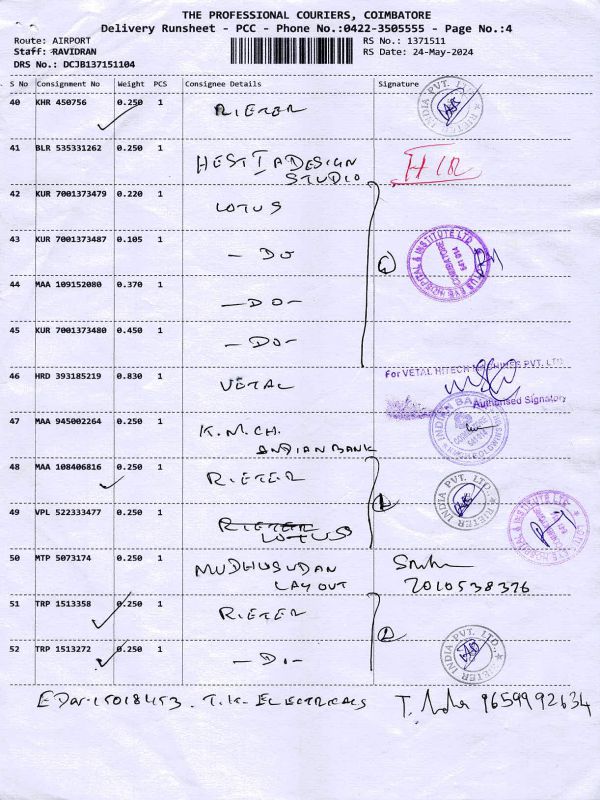 THE PROFESSIONAL COURIERS, COIMBATORE
Delivery Runsheet - PCC - Phone No.:0422-3505555 - Page No.:4
Route: AIRPORT RS No.: 1371511
Staff: RAVIDRAN RS Date: 24-May-2024
DRS No.: DCJB137151104
S No Consignment No Weight PCS Consignee Details Signature
40 KHR 450756 0.250 1 RIETER
41 BLR 535331262 0.250 1 HESTIA DESIGN STUDIO
42 KUR 7001373479 0.220 1 LOTUS
43 KUR 7001373487 0.105 1 - DO
44 MAA 109152080 0.370 1 - DO -
45 KUR 7001373480 0.450 1 - DO -
46 HRD 393185219 0.830 1 VETAL For VETAL HITECH MACHINES PVT. LTD
Authorised Signatory
47 MAA 945002264 0.250 1 K.M.CH. INDIAN BANK
48 MAA 108406816 0.250 1 RIETER
49 VPL 522333477 0.250 1 RIETER LOTUS
50 MTP 5073174 0.250 1 MUDHUSUDAN LAYOUT 7010538376
51 TRP 1513358 0.250 1 RIETER
52 TRP 1513272 0.250 1 - DO -
T.K. ELECTRICALS 9659992634